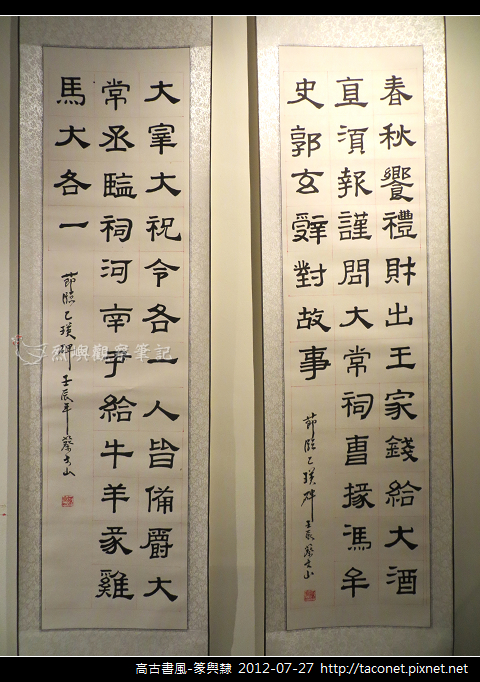 春秋饗禮財出王家錢給大酒
直須報謹問大常祠曹掾馮牟
史郭玄辭對故事
節臨乙瑛碑 壬辰
大宰大祝令各一人皆備爵大
常丞臨祠河南尹給牛羊豕雞
馬大各一
節臨乙瑛碑 壬辰年
烈嶼觀察筆記
高古書風-篆與隸 2012-07-27 http://taconet.pixnet.net